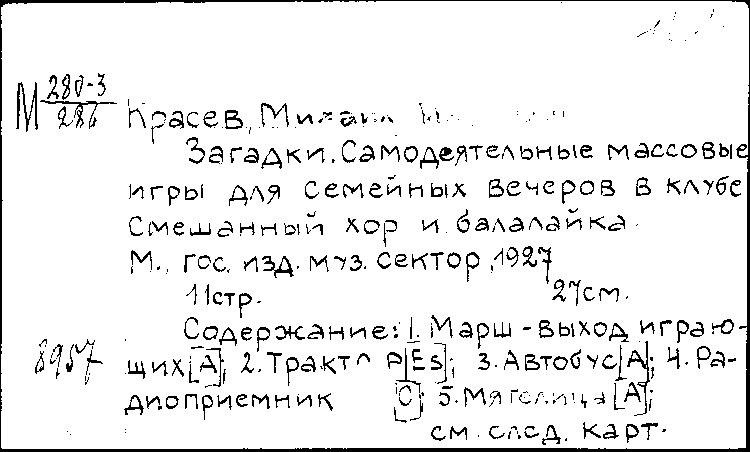 М 280-3
286
Красев, Михаил
Загадки. Самодеятельные массовые
игры для семейных вечеров в клубе
Смешанный хор и балалайка.
М., гос. изд. муз. сектор, 1927
11стр. 27см.
Содержание: 1. Марш-выход играю-
8957 щих [A]; 2. Трактор [Es]; 3. Автобус [A]; 4. Ра-
диоприемник [C]; 5. Мятелица [A];
см. след. карт.